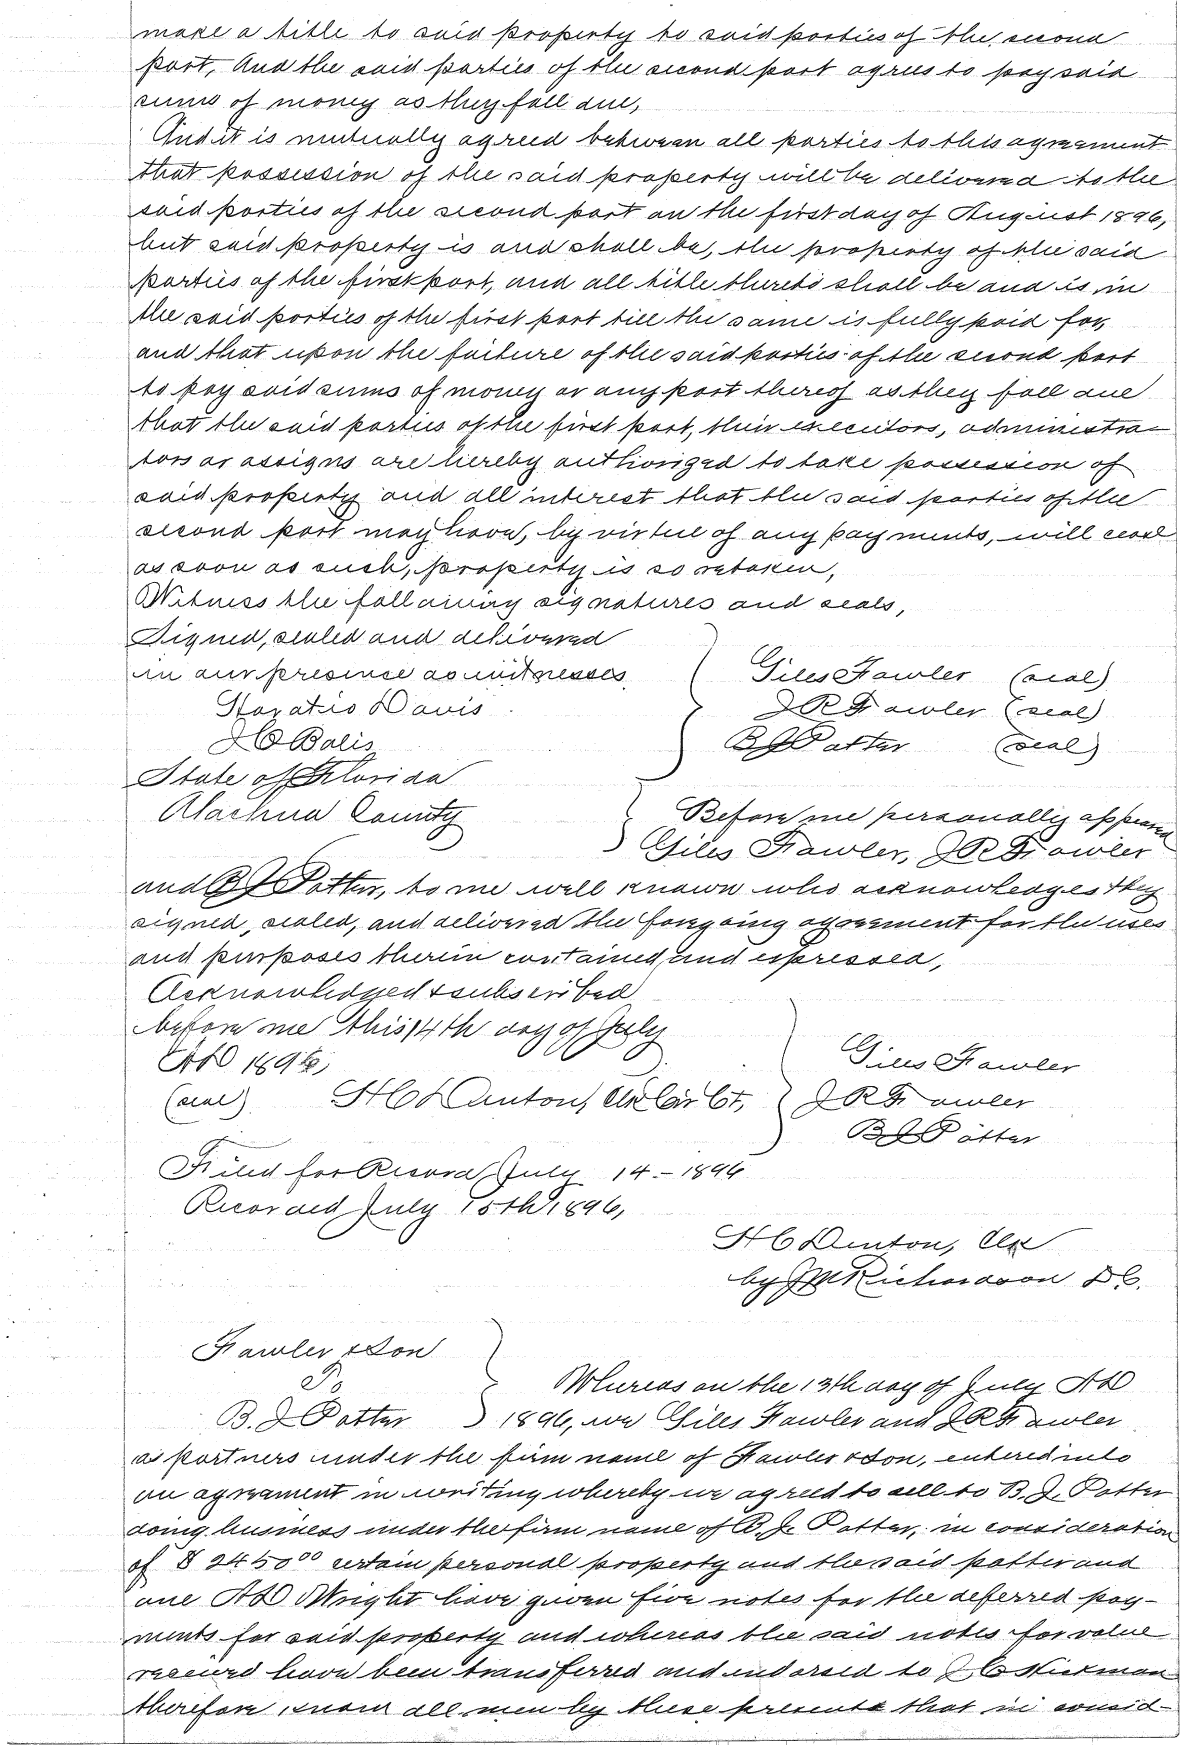 make a title to said property to said parties of the second
part, And the said parties of the second part agrees to pay said
sums of money as they fall due,
And it is mutually agreed between all parties to this agreement
that possession of the said property will be delivered to the
said parties of the second part on the first day of August 1896,
but said property is and shall be, the property of the said
parties of the first part, and all title thereto shall be and is in
the said parties of the first part till the same is fully paid for,
and that upon the failure of the said parties of the second part
to pay said sums of money or any part thereof as they fall due
that the said parties of the first part, their executors, administra-
tors or assigns are hereby authorized to take possession of
said property and all interest that the said parties of the
second part may have, by virtue of any payments, will cease
as soon as such, property is so retaken,
Witness the following signatures and seals,
Signed, sealed and delivered
in our presence as witnesses
Giles Fowler (seal)
Horatio Davis
J R Fowler (seal)
Balis
B J Potter (seal)
State of Florida
Alachua County
Before me personally appeared
Giles Fowler, J R Fowler
and B J Potter, to me well known who acknowledges they
signed, sealed, and delivered the foregoing agreement for the uses
and purposes therein contained and expressed,
Acknowledged & subscribed
before me this 14th day of July
AD 1896,
Giles Fowler
(seal) H C Denton, Clk Cir Ct,
J R Fowler
B J Potter
Filed for Record July 14 - 1896
Recorded July 15th 1896,
H C Denton, Clk
by J M Richardson D C.
Fowler & Son
To
Whereas on the 13th day of July AD
B. J Potter
1896, we Giles Fowler and J R Fowler
as partners under the firm name of Fowler & Son, entered into
an agreement in writing whereby we agreed to sell to B. J. Potter
doing business under the firm name of B. J. Potter, in consideration
of $ 2450⁰⁰ certain personal property and the said potter and
one A D Wright have given five notes for the deferred pay-
ments for said property and whereas the said notes for value
received have been transferred and indorsed to J C Hickman
therefore, know all men by these presents that in consid-